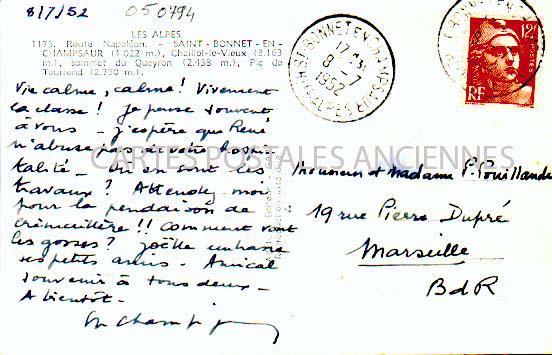 8/7/52 050794
LES ALPES
1175. Route Napoléon. - SAINT-BONNET-EN-
CHAMPSAUR (1.022 m.), Chaillol-le-Vieux (3.163
m.), sommet du Queyron (2.438 m.), Pic de
Tourrond (2.730 m.).
Vie calme, calme! Vivement
la classe! Je pense souvent
à vous - j'espère que René
n'abuse pas de votre hospi-
talité - Où en sont les
travaux? Attendez-moi
pour la pendaison de
crémaillère!! Comment vont
les gosses? Joëlle embrasse
ses petits amis - Amical
souvenir à tous deux -
A bientôt -
ST BONNET EN CHAMPSAUR
HTES ALPES
17
8-7
1952
12F
RF
CARTES POSTALES ANCIENNES
Monsieur et Madame P.
19 rue Pierre Dupré
Marseille
BdR